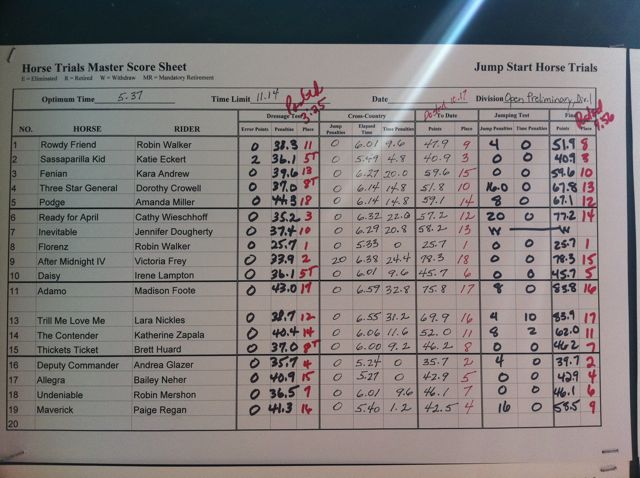 Horse Trials Master Score Sheet Jump Start Horse Trials
E = Eliminated R = Retired W = Withdraw MR = Mandatory Retirement
Optimum Time 5.37 Time Limit 11.14 Posted 3:25 Date Posted 10.17 Division Open Preliminary, Div. 1 Posted
Dressage Test Cross-Country To Date Jumping Test Final
NO. HORSE RIDER Error Points Penalties Place Jump Penalties Elapsed Time Time Penalties Points Place Jump Penalties Time Penalties Points Place
1 Rowdy Friend Robin Walker 0 38.3 11 0 6.01 9.6 47.9 9 4 0 51.9 8
2 Sassaparilla Kid Katie Eckert 2 36.1 5T 0 5.49 4.8 40.9 3 0 0 40.9 3
3 Fenian Kara Andrew 0 39.6 13 0 6.27 20.0 59.6 15 0 0 59.6 10
4 Three Star General Dorothy Crowell 0 37.0 8T 0 6.14 14.8 51.8 10 16.0 0 67.8 13
5 Podge Amanda Miller 0 44.3 18 0 6.14 14.8 59.1 14 8 0 67.1 12
6 Ready for April Cathy Wieschhoff 0 35.2 3 0 6.32 22.0 57.2 12 20 0 77.2 14
7 Inevitable Jennifer Dougherty 0 37.4 10 0 6.29 20.8 58.2 13 W W
8 Florenz Robin Walker 0 25.7 1 0 5.33 0 25.7 1 0 0 25.7 1
9 After Midnight IV Victoria Frey 0 33.9 2 20 6.38 24.4 78.3 18 0 0 78.3 15
10 Daisy Irene Lampton 0 36.1 5T 0 6.01 9.6 45.7 6 0 0 45.7 5
11 Adamo Madison Foote 0 43.0 17 0 6.59 32.8 75.8 17 8 0 83.8 16
13 Trill Me Love Me Lara Nickles 0 38.7 12 0 6.55 31.2 69.9 16 4 10 83.9 17
14 The Contender Katherine Zapala 0 40.4 14 0 6.06 11.6 52.0 11 8 2 62.0 11
15 Thickets Ticket Brett Huard 0 37.0 8T 0 6.00 9.2 46.2 8 0 0 46.2 7
16 Deputy Commander Andrea Glazer 0 35.7 4 0 5.24 0 35.7 2 4 0 39.7 2
17 Allegra Bailey Neher 0 40.9 15 0 5.27 0 42.9 5 0 0 42.9 4
18 Undeniable Robin Mershon 0 36.5 7 0 6.01 9.6 46.1 7 0 0 46.1 6
19 Maverick Paige Regan 0 41.3 16 0 5.40 1.2 42.5 4 16 0 58.5 9
20